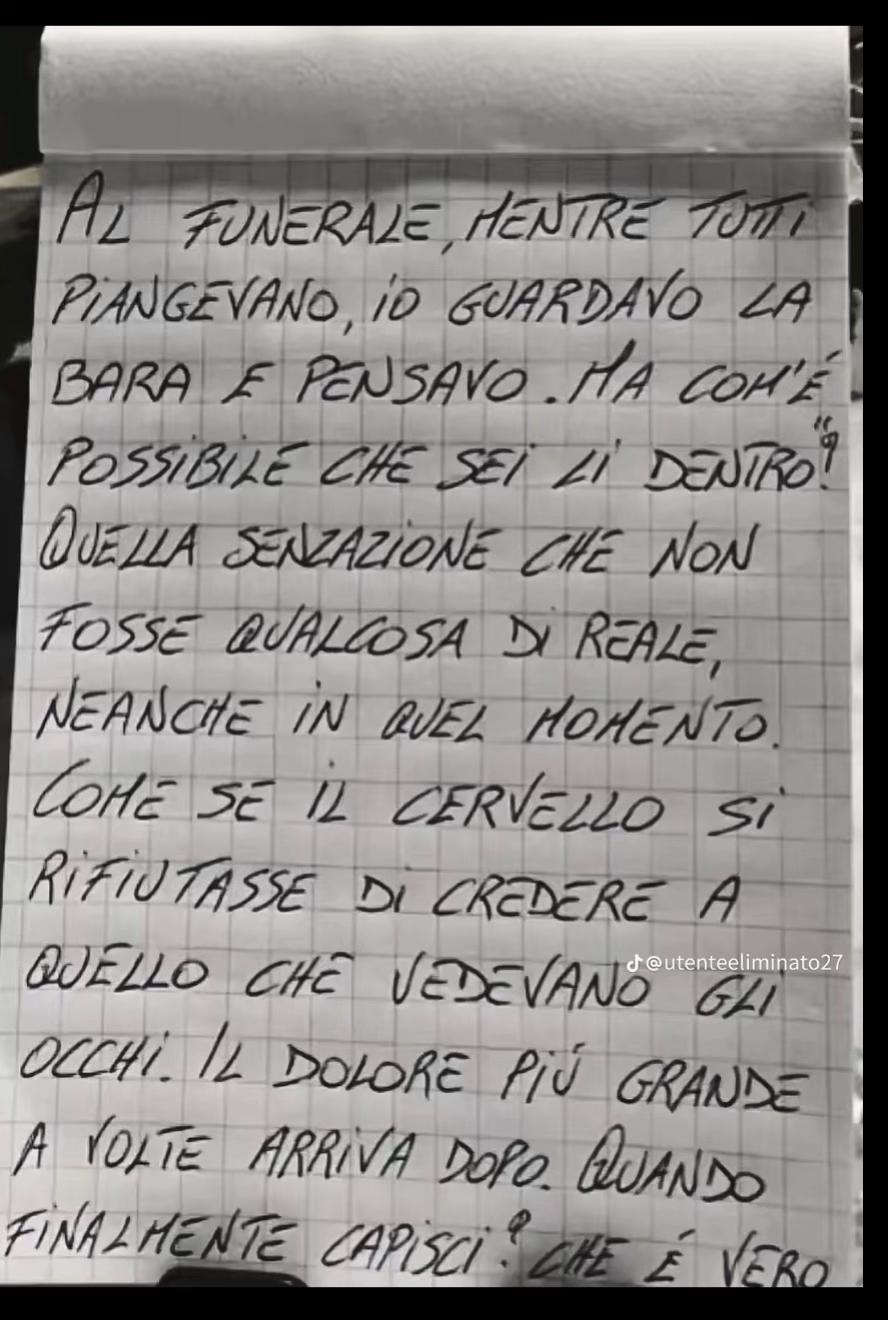 AL FUNERALE, MENTRE TUTTI
PIANGEVANO, IO GUARDAVO LA
BARA E PENSAVO. MA COM'É
POSSIBILE CHE SEI LÍ DENTRO"?
QUELLA SENZAZIONE CHE NON
FOSSE QUALCOSA DI REALE,
NEANCHE IN QUEL MOMENTO.
COME SE IL CERVELLO SI
RIFIUTASSE DI CREDERE A
QUELLO CHE VEDEVANO GLI
@utenteeliminato27
OCCHI. IL DOLORE PIÚ GRANDE
A VOLTE ARRIVA DOPO. QUANDO
FINALMENTE CAPISCI? CHE É VERO